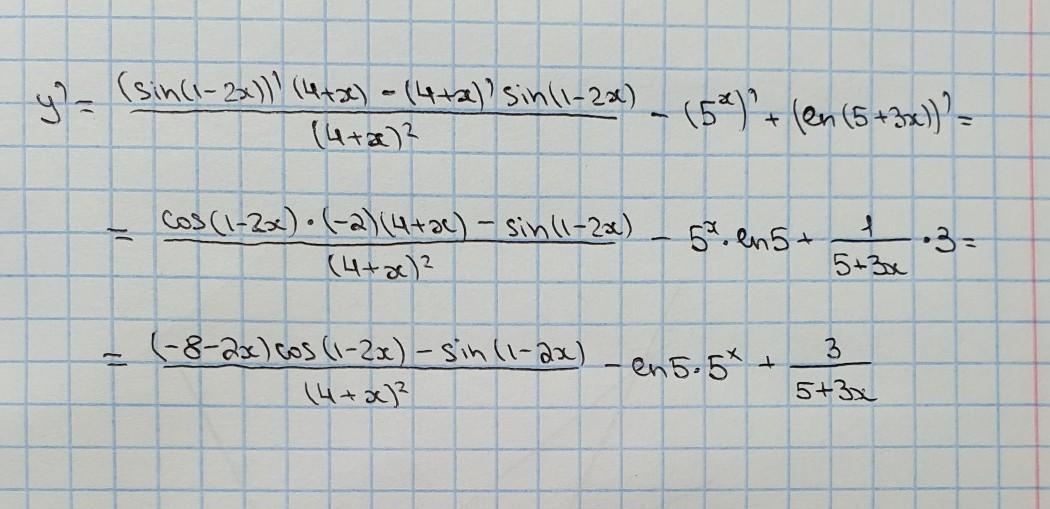 y' = ((sin(1-2x))' (4+x) - (4+x)' sin(1-2x)) / (4+x)² - (5ˣ)' + (ln(5+3x))' =
= (cos(1-2x)·(-2)(4+x) - sin(1-2x)) / (4+x)² - 5ˣ·ln5 + 1/(5+3x) ·3 =
= ((-8-2x)cos(1-2x) - sin(1-2x)) / (4+x)² - ln5·5ˣ + 3/(5+3x)